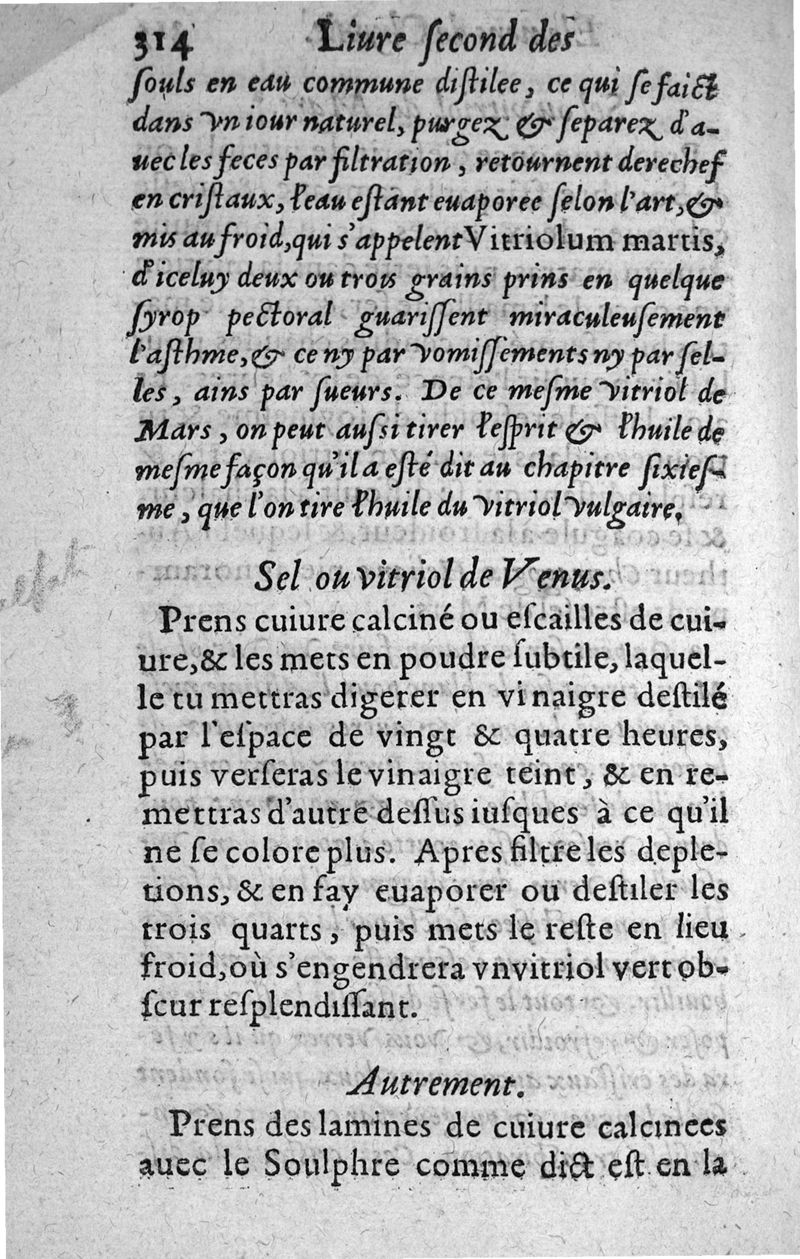 314 Liure ſecond des
ſouls en eau commune diſtilee, ce qui ſe faict
dans vn iour naturel, purgez & ſeparez d'a-
uec les feces par filtration, retournent derechef
en criſtaux, l'eau eſtant euaporee ſelon l'art, &
mis au froid, qui s'appelent Vitriolum martis,
d'iceluy deux ou trois grains prins en quelque
ſyrop pectoral guariſſent miraculeuſement
l'aſthme, & ce ny par vomiſſements ny par ſel-
les, ains par ſueurs. De ce meſme vitriol de
Mars, on peut auſsi tirer l'eſprit & l'huile de
meſme façon qu'il a eſté dit au chapitre ſixieſ-
me, que l'on tire l'huile du vitriol vulgaire.
Sel ou vitriol de Venus.
Prens cuiure calciné ou eſcailles de cui-
ure, & les mets en poudre ſubtile, laquel-
le tu mettras digerer en vinaigre deſtilé
par l'eſpace de vingt & quatre heures,
puis verſeras le vinaigre teint, & en re-
mettras d'autre deſſus iuſques à ce qu'il
ne ſe colore plus. Apres filtre les deple-
tions, & en fay euaporer ou deſtiler les
trois quarts, puis mets le reſte en lieu
froid, où s'engendrera vn vitriol vert ob-
ſcur reſplendiſſant.
Autrement.
Prens des lamines de cuiure calcinees
auec le Soulphre comme dict eſt en la